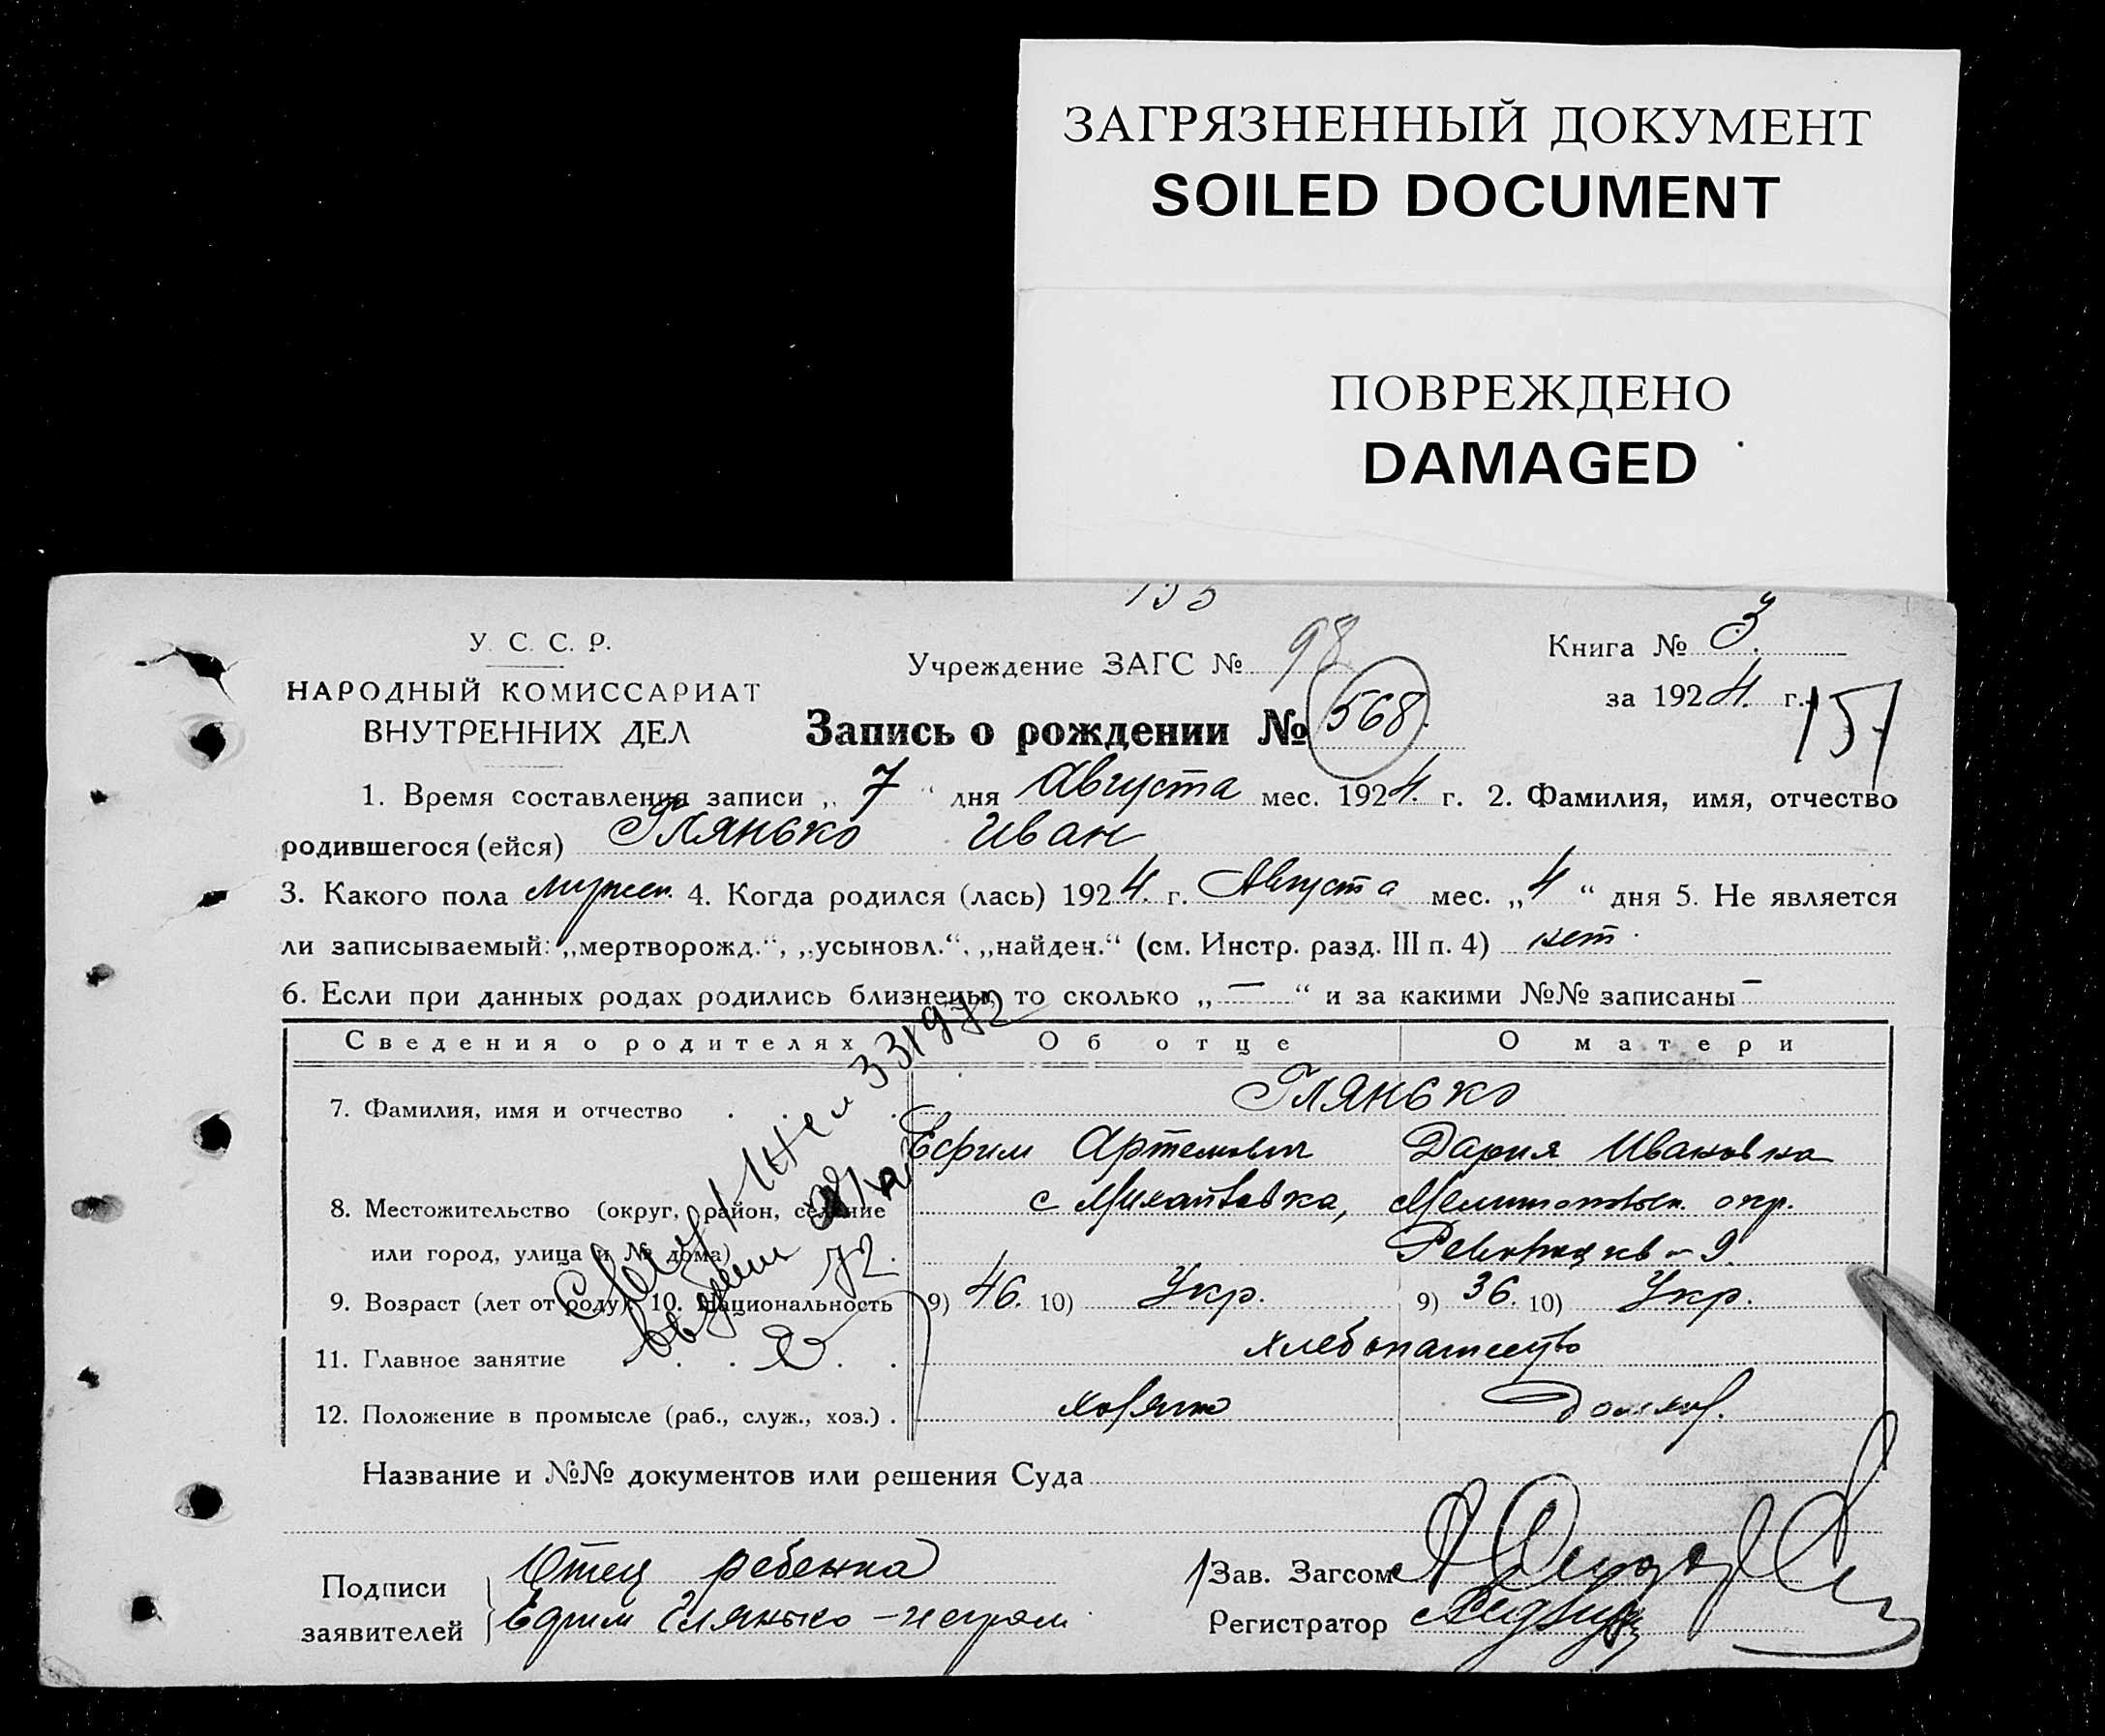 ЗАГРЯЗНЕННЫЙ ДОКУМЕНТ
SOILED DOCUMENT
ПОВРЕЖДЕНО
DAMAGED
У. С. С. Р.
НАРОДНЫЙ КОМИССАРИАТ
ВНУТРЕННИХ ДЕЛ
Учреждение ЗАГС № 98
Книга № 3.
за 1924. г.
151
Запись о рождении № 568.
1. Время составления записи „ 7 “ дня Августа мес. 1924. г. 2. Фамилия, имя, отчество
родившегося (ейся) Глянько Иван
3. Какого пола мужск. 4. Когда родился (лась) 1924. г. Августа мес. „ 4 “ дня 5. Не является
ли записываемый: „мертворожд.“, „усыновл.“, „найден.“ (см. Инстр. разд. III п. 4) нет.
6. Если при данных родах родились близнецы, то сколько „ — “ и за какими №№ записаны —
Сведения о родителях Об отце О матери
7. Фамилия, имя и отчество . . Глянько
Ефим Артемович Дария Ивановна
8. Местожительство (округ, район, селение с Михайловка, Мелитопольск. окр.
или город, улица и № дома) . 9.
9. Возраст (лет от роду) 10. Национальность 9) 46. 10) Укр. 9) 36. 10) Укр.
11. Главное занятие . . . . хлебопашество
12. Положение в промысле (раб., служ., хоз.) . хозяин домхоз.
331972
72
Название и №№ документов или решения Суда
Подписи
заявителей
Отец ребенка
Ефим Глянько - неграм.
Зав. Загсом
Регистратор